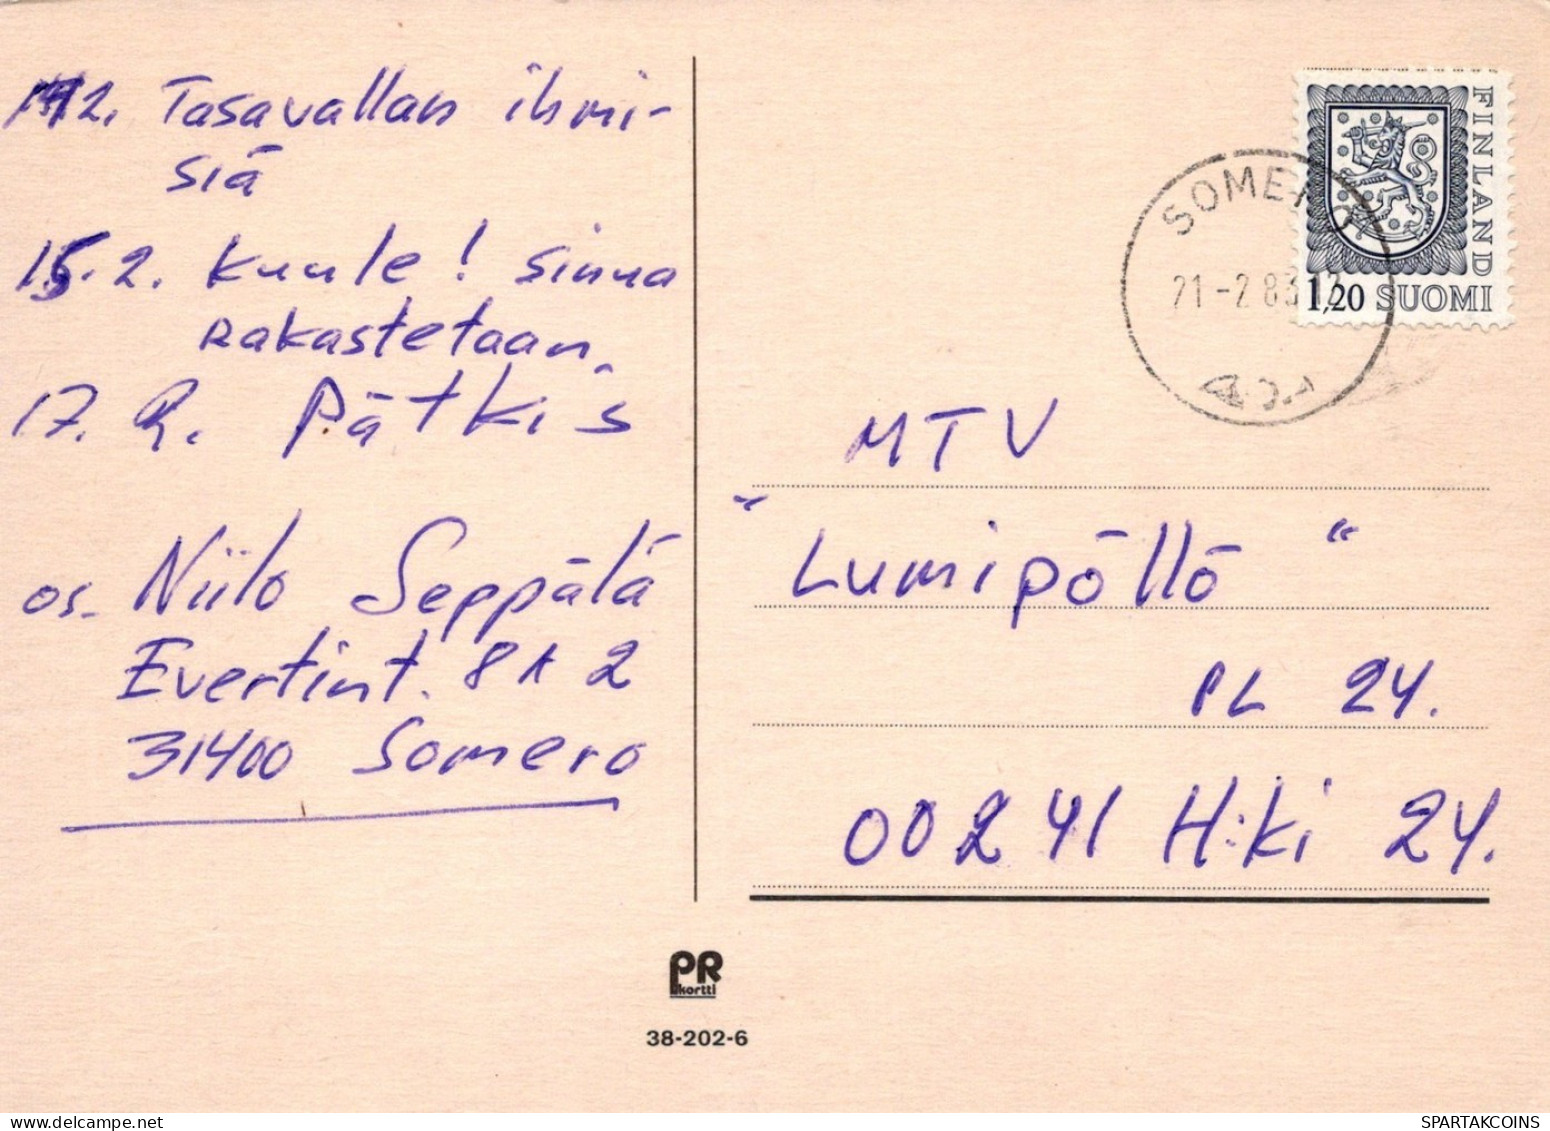 12. Tasavallan ihmi-
siä
15.2. Kuule! sinua
Rakastetaan.
17.2. Pätkis
os. Niilo Seppälä
Evertint. 8 A 2
31400 Somero
FINLAND
1,20 SUOMI
SOMERO
21-2 83 12
MTV
"Lumipöllö"
PL 24.
00241 H:ki 24.
PR
kortti
38-202-6
SPARTAKCOINS